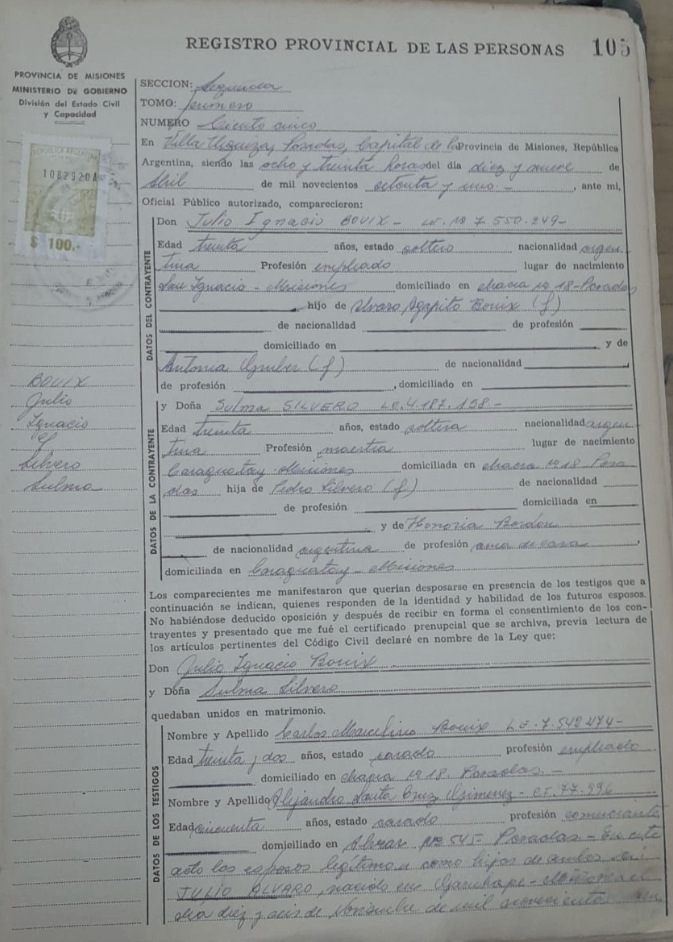 REGISTRO PROVINCIAL DE LAS PERSONAS 105
PROVINCIA DE MISIONES
MINISTERIO DE GOBIERNO
División del Estado Civil
y Capacidad
1082920A
$ 100.-
BOUIX
Julio
Ignacio
y
Silvero
Sulma
SECCION: Segunda
TOMO: primero
NUMERO Ciento cinco
En Villa Urquiza, Posadas, Capital de la Provincia de Misiones, República
Argentina, siendo las ocho y treinta horas del día diez y nueve de
Abril de mil novecientos setenta y uno.- , ante mí,
Oficial Público autorizado, comparecieron:
DATOS DEL CONTRAYENTE
Don Julio Ignacio BOUIX - LE. Nº 7.550.249-
Edad treinta años, estado soltero nacionalidad argen
tina Profesión empleado lugar de nacimiento
San Ignacio - Misiones domiciliado en chacra Nº 18-Posadas
hijo de Alvaro Agapito Bouix (f)
de nacionalidad de profesión
domiciliado en y de
Antonia (f) de nacionalidad
de profesión , domiciliado en
DATOS DE LA CONTRAYENTE
y Doña Sulma SILVERO LC.4.187.158-
Edad treinta años, estado soltera nacionalidad argen
tina Profesión maestra lugar de nacimiento
Caraguatay Misiones domiciliada en chacra Nº 18 Posa
das hija de Pedro Silvero (f) de nacionalidad
de profesión domiciliada en
y de Honoria Bordon
de nacionalidad argentina de profesión ama de casa,
domiciliada en Caraguatay - Misiones
Los comparecientes me manifestaron que querían desposarse en presencia de los testigos que a
continuación se indican, quienes responden de la identidad y habilidad de los futuros esposos.
No habiéndose deducido oposición y después de recibir en forma el consentimiento de los con-
trayentes y presentado que me fué el certificado prenupcial que se archiva, previa lectura de
los artículos pertinentes del Código Civil declaré en nombre de la Ley que:
Don Julio Ignacio Bouix
y Doña Sulma Silvero
quedaban unidos en matrimonio.
DATOS DE LOS TESTIGOS
Nombre y Apellido Carlos Marcelino Bouix LE.7.542.474-
Edad treinta y dos años, estado casado profesión empleado
domiciliado en chacra Nº 18 Posadas.-
Nombre y Apellido Alejandro Santa Cruz Gimenez - CI.77.996
Edad cincuenta años, estado casado profesión comerciante
domiciliado en Alvear Nº 545- Posadas - En este
acto los esposos legitiman como hijos de ambos
JULIO ALVARO, nacido en Garuhape - Misiones el
día diez y seis de Noviembre de mil novecientos